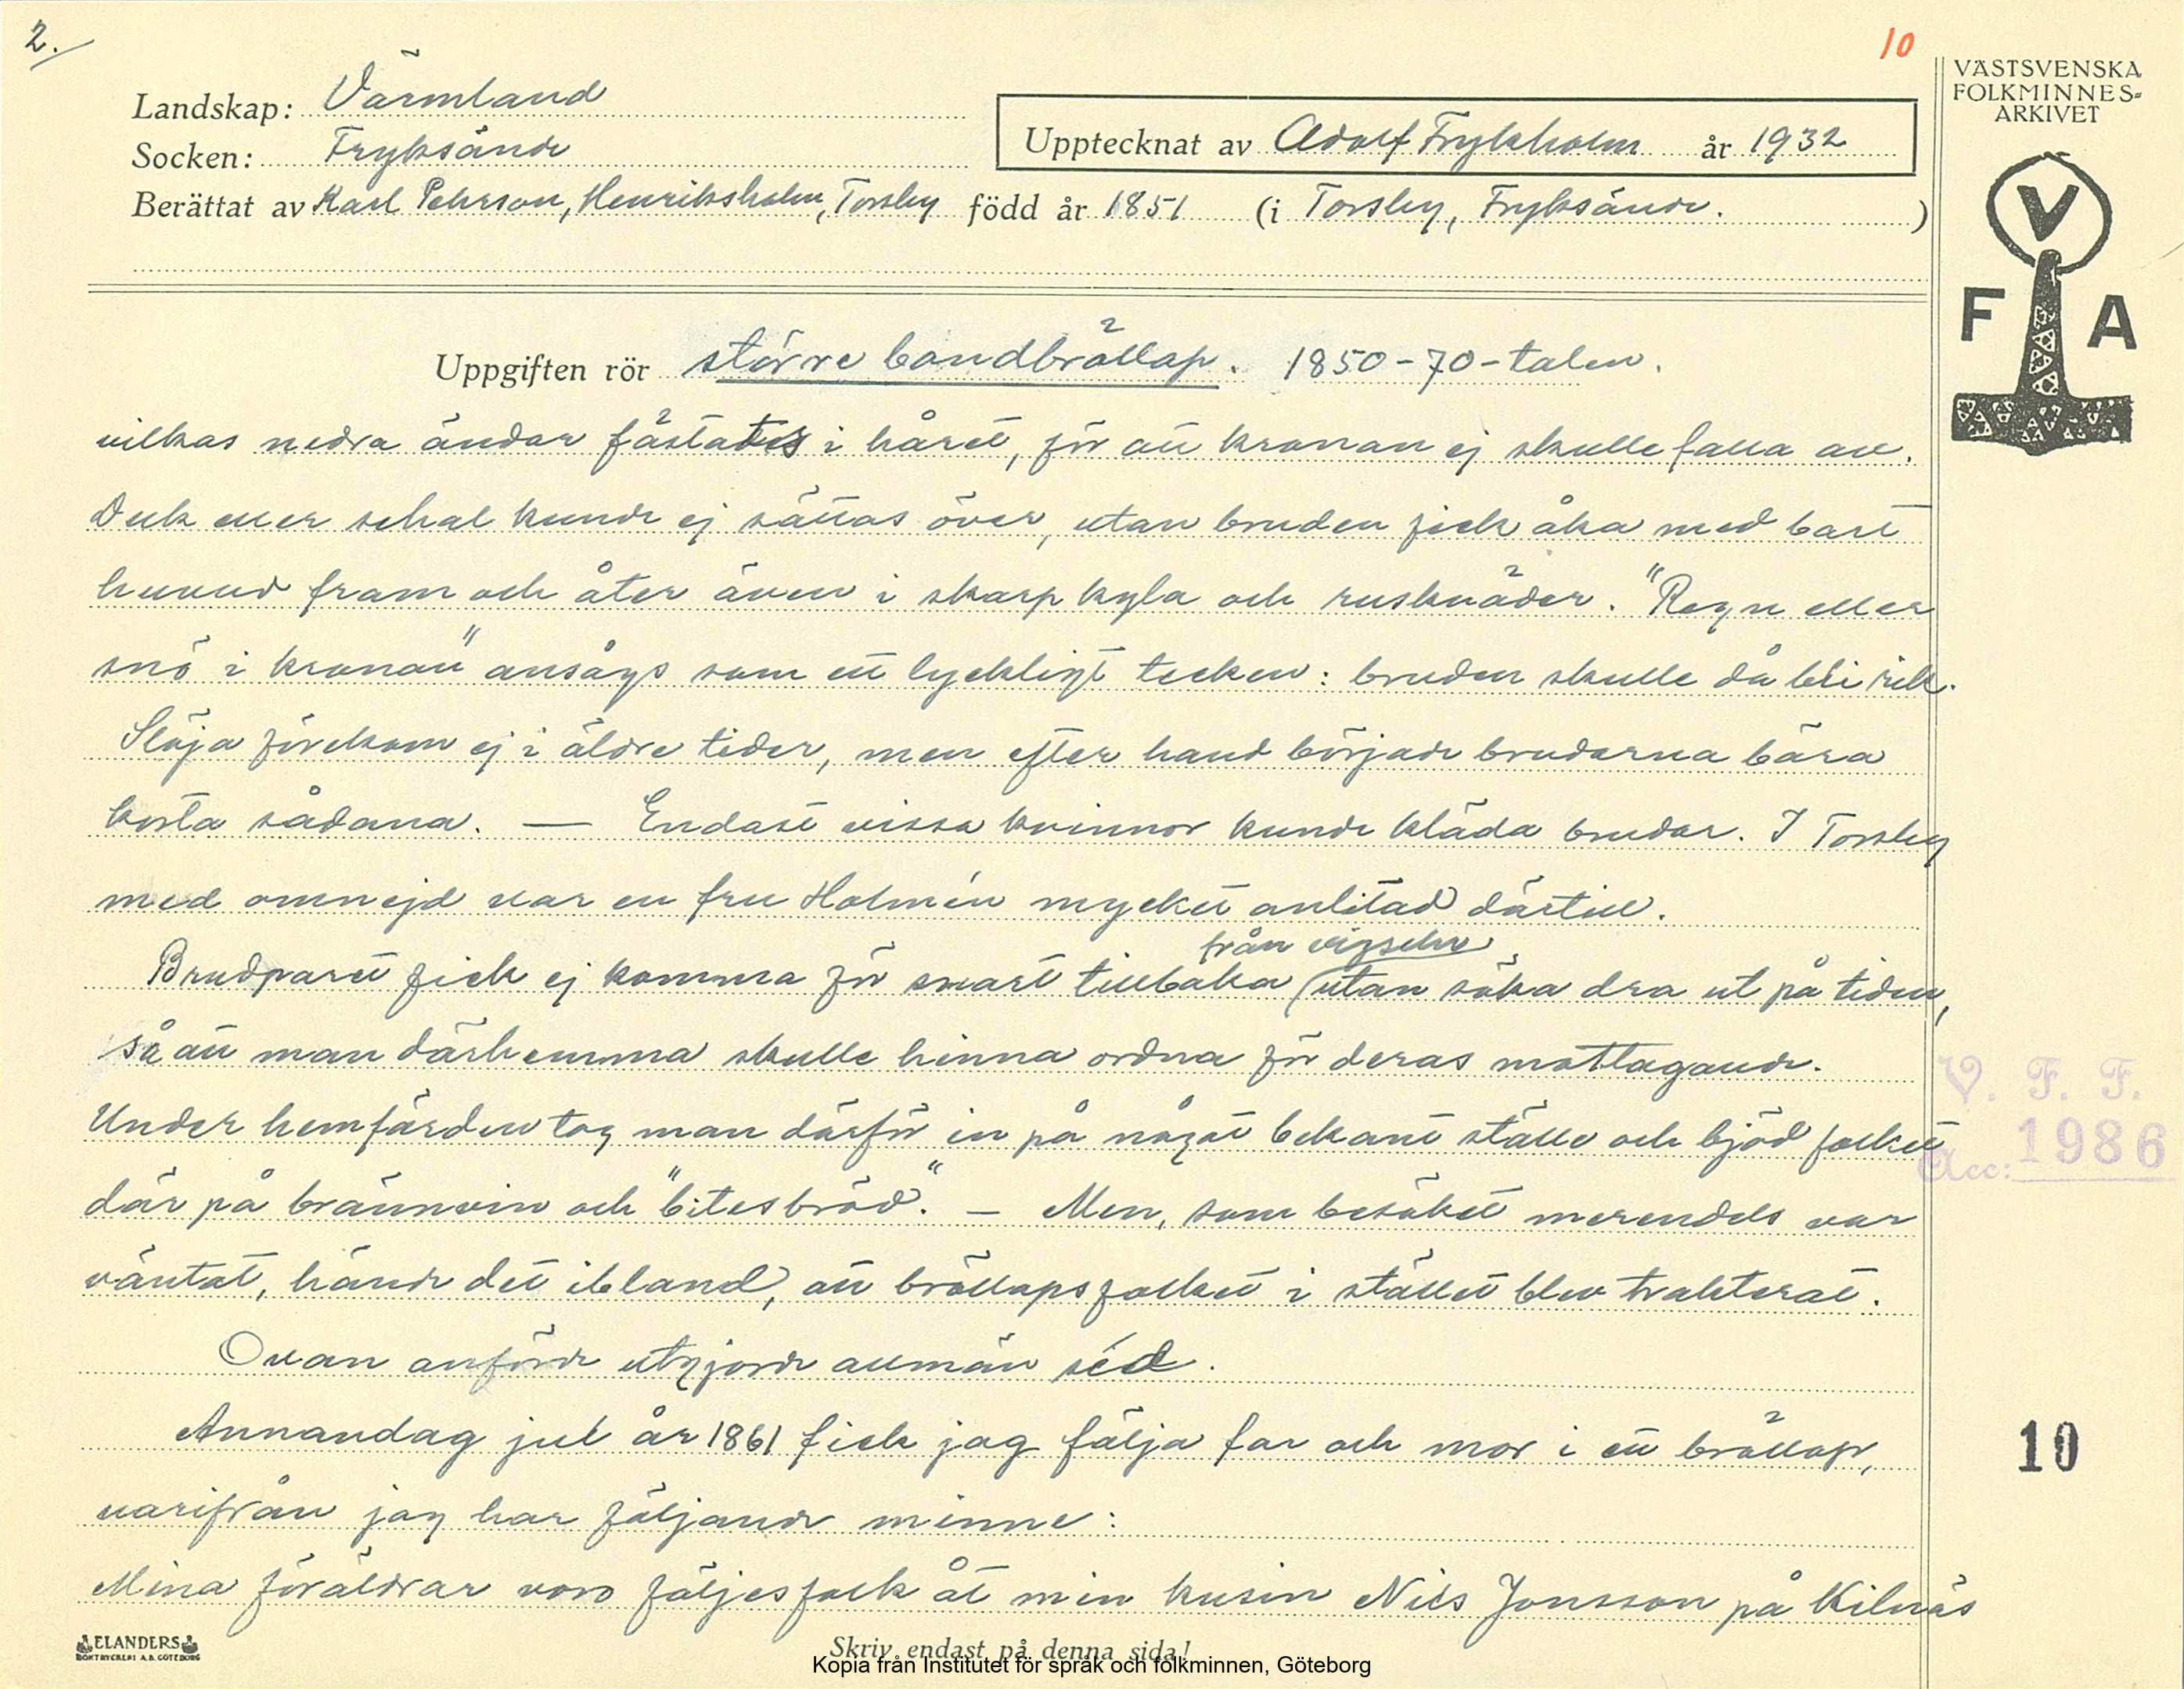 2.
10
VÄSTSVENSKA
FOLKMINNES-
ARKIVET
Landskap: Värmland
Socken: Fryksände
Upptecknat av Adolf Frykholm år 1932
Berättat av Karl Pehrson, Henriksholm, Torsby född år 1851 (i Torsby, Fryksände. )
V
F A
Uppgiften rör större bondbröllop. 1850-70-talen.
vilkas nedra ändar fästates i håret, för att kronan ej skulle falla av.
Duk eller schal kunde ej sättas över, utan bruden fick åka med bart
huvud fram och åter även i skarp kyla och ruskväder. "Regn eller
snö i kronan" ansågs som ett lyckligt tecken: bruden skulle då bli rik.
Slöja förekom ej i äldre tider, men efter hand började brudarna bära
korta sådana. — Endast vissa kvinnor kunde kläda brudar. I Torsby
med omnejd var en fru Holmén mycket anlitad därtill.
från vigseln,
Brudparet fick ej komma för snart tillbaka (utan söka dra ut på tiden,
så att man därhemma skulle hinna ordna för deras mottagande.
Under hemfärden tog man därför in på något bekant ställe och bjöd folket
där på brännvin och "bitesbröd". — Men, som besöket merendels var
väntat, hände det ibland, att bröllopsfolket i stället blev trakterat.
Ovan anförde utgjorde allmän séd.
Annandag jul år 1861 fick jag följa far och mor i ett bröllop,
varifrån jag har följande minne:
Mina föräldrar voro följesfolk åt min kusin Nils Jonsson på Kilnäs
V. F. F.
Acc: 1986
10
ELANDERS
BOKTRYCKERI A.B. GÖTEBORG
Skriv endast på denna sida!
Kopia från Institutet för språk och folkminnen, Göteborg